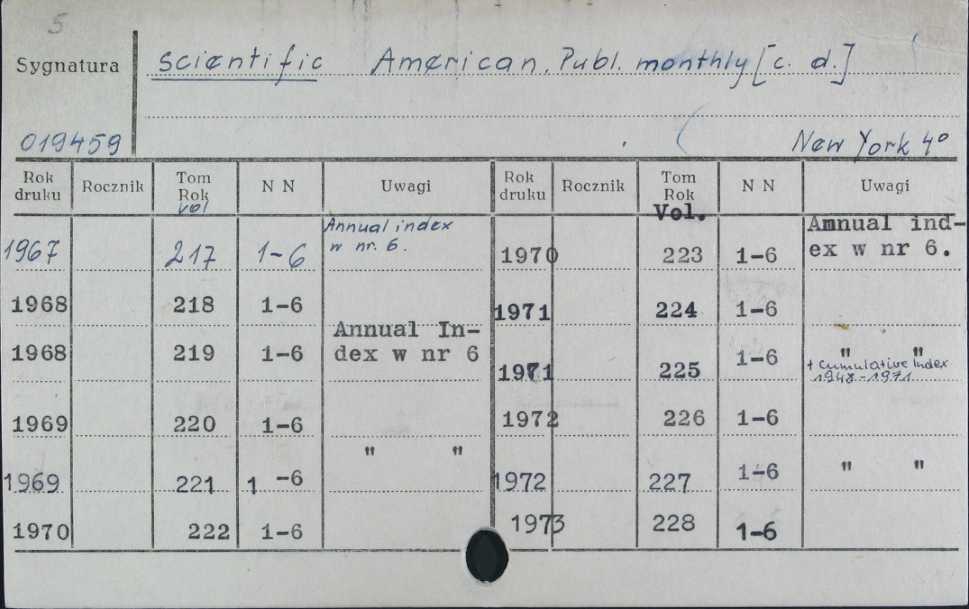 5
Sygnatura
Scientific American. Publ. monthly [c. d.]
019459
New York 4°
Rok druku Rocznik Tom Rok N N Uwagi Rok druku Rocznik Tom Rok N N Uwagi
vol Vol.
1967 217 1-6 Annual index w nr. 6.
1968 218 1-6
1968 219 1-6 Annual In-
dex w nr 6
1969 220 1-6
1969 221 1-6 " "
1970 222 1-6
1970 223 1-6 Annual ind-
ex w nr 6.
1971 224 1-6
1971 225 1-6 " "
+ Cumulative Index
1948-1971
1972 226 1-6
1972 227 1-6 " "
1973 228 1-6